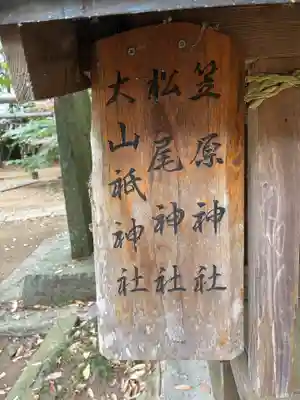 笠原神社
松尾神社
大山祇神社